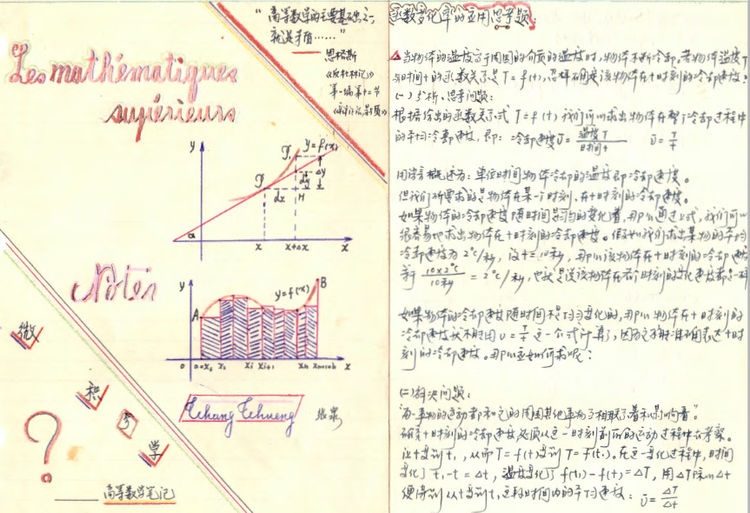 "高等数学的主要基础之一
就是矛盾……"
恩格斯
《反杜林记》
第一编第十二节
Les mathématiques
supérieurs
y
y=f(x)
P₁
P
Δy
dy
dx
H
α
x
x+Δx
x
Notes
y
y=f(x)
A
B
0
x
Tchang Tchueng
微
积
分
学
?
高等数学笔记
函数变化率的应用思考题:
当物体的温度高于周围的介质的温度时,物体不断冷却,若物体温度T
与时间t的函数关系是T=f(t),怎样确定该物体在t时刻的冷却速度?
(一)分析、思考问题:
根据给出的函数关系式 T=f(t) 我们可以求出物体在整个冷却过程中
的平均冷却速度,即:冷却速度 v̄ = 温度T/时间t v̄ = T/t
用语言概述为:单位时间物体冷却的温度即冷却速度。
但我们所需求的是物体在某一个时刻,在t时刻的冷却速度。
如果物体的冷却速度随时间是均匀的变化着,那么通过公式,我们可以
很容易地求出物体在t时刻的冷却速度。假如我们求出某物的平均
冷却速度为2°C/秒,设t=10秒,那么该物体在t时刻的冷却速度
等于 10×2°C/10秒 = 2°C/秒,也就是说该物体在各个时刻的变化速度都是一样
如果物体的冷却速度随时间不是均匀变化的,那么物体在t时刻的
冷却速度就不能用 v = T/t 这一个式计算了,因为它不能准确的表达t时
刻的冷却速度。那么应如何求呢?
(二)解决问题:
"每一事物的运动都和它的周围其他事物互相联系着和互相影响着"。
研究t时刻的冷却速度必须从这一时刻前后的运动过程中去考察。
设t变到t₁,从而T=f(t)变到T=f(t₁),在这一变化过程中,时间
变化了 t₁-t=Δt,温度变化了 f(t₁)-f(t)=ΔT,用ΔT除以Δt
便得到从t变到t₁这段时间内的平均速度: v̄ = ΔT/Δt